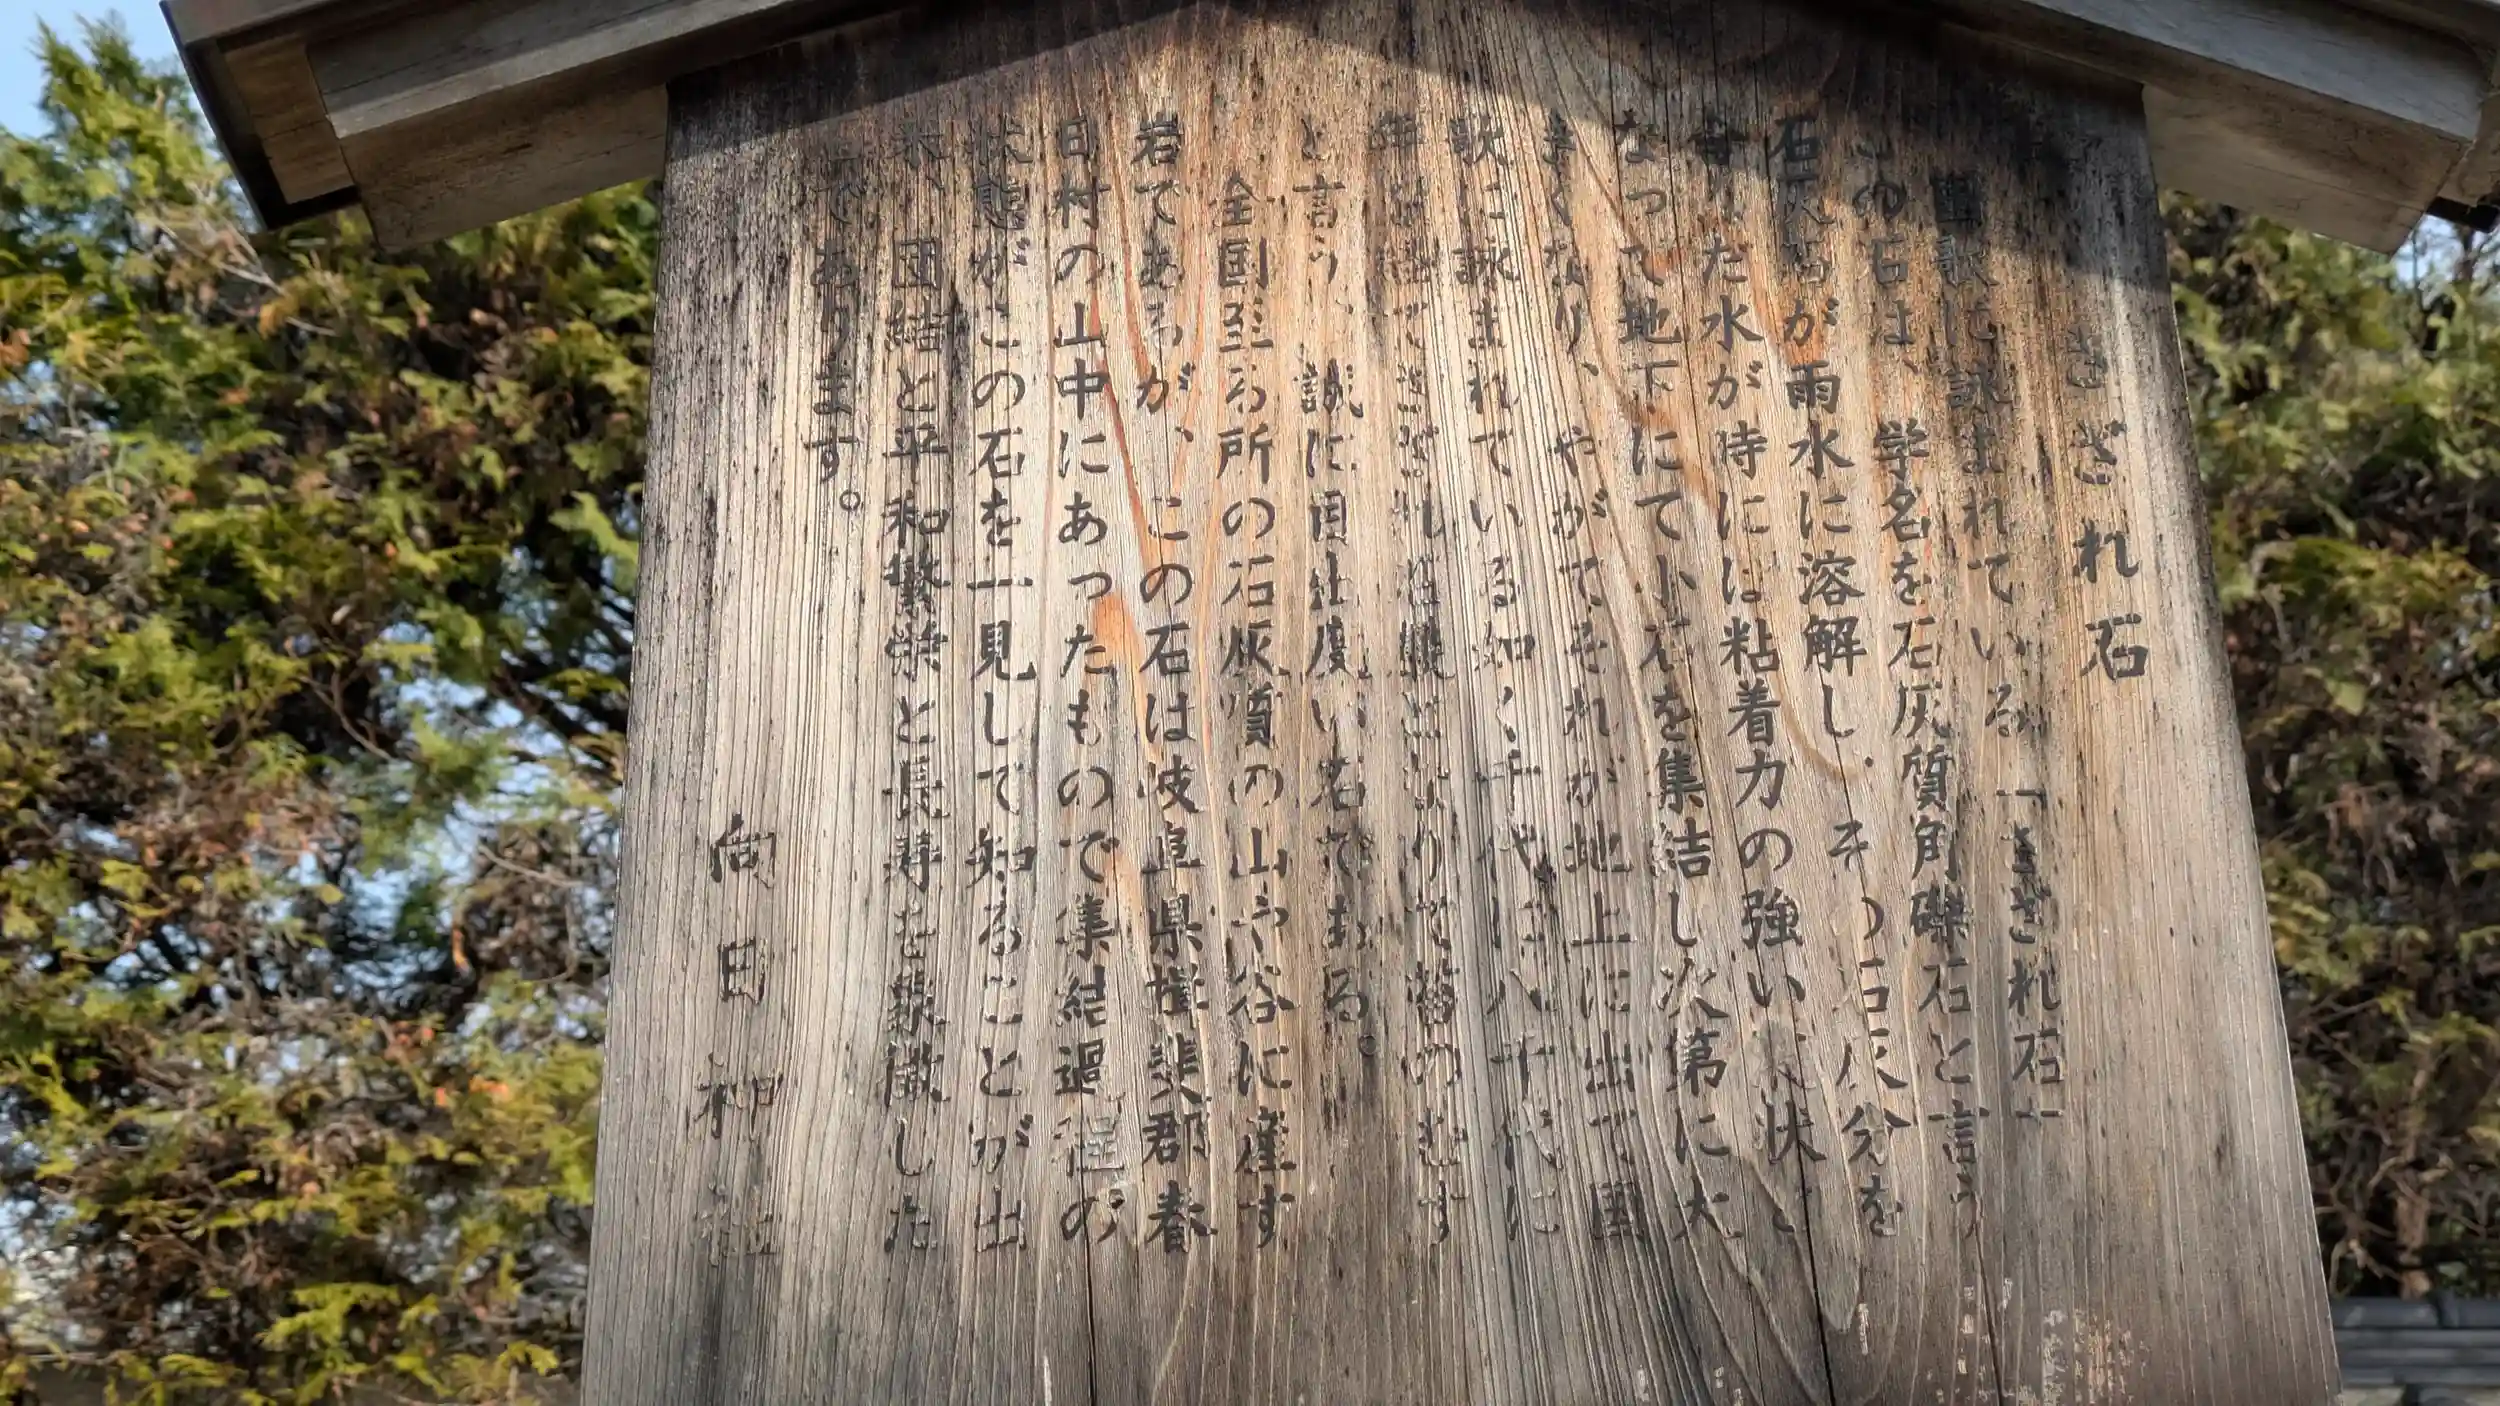 さざれ石
国歌に詠まれている「さざれ石」
この石は、学名を石灰質角礫石と言う
石灰石が雨水に溶解し、その石灰分を
含んだ水が時には粘着力の強い 状と
なって地下にて小石を集結し次第に大
きくなり、やがてそれが地上に出て国
歌に詠まれている如く千代に八千代に
年を経てさざれ石巌となりて苔のむす
と言う、誠に目出度い石である。
全国至る所の石灰質の山や谷に産す
岩であるが、この石は岐阜県揖斐郡春
日村の山中にあったもので集結過程の
状態がこの石を一見して知ることが出
来、団結と平和繁栄と長寿を象徴した
であります。
向日神社